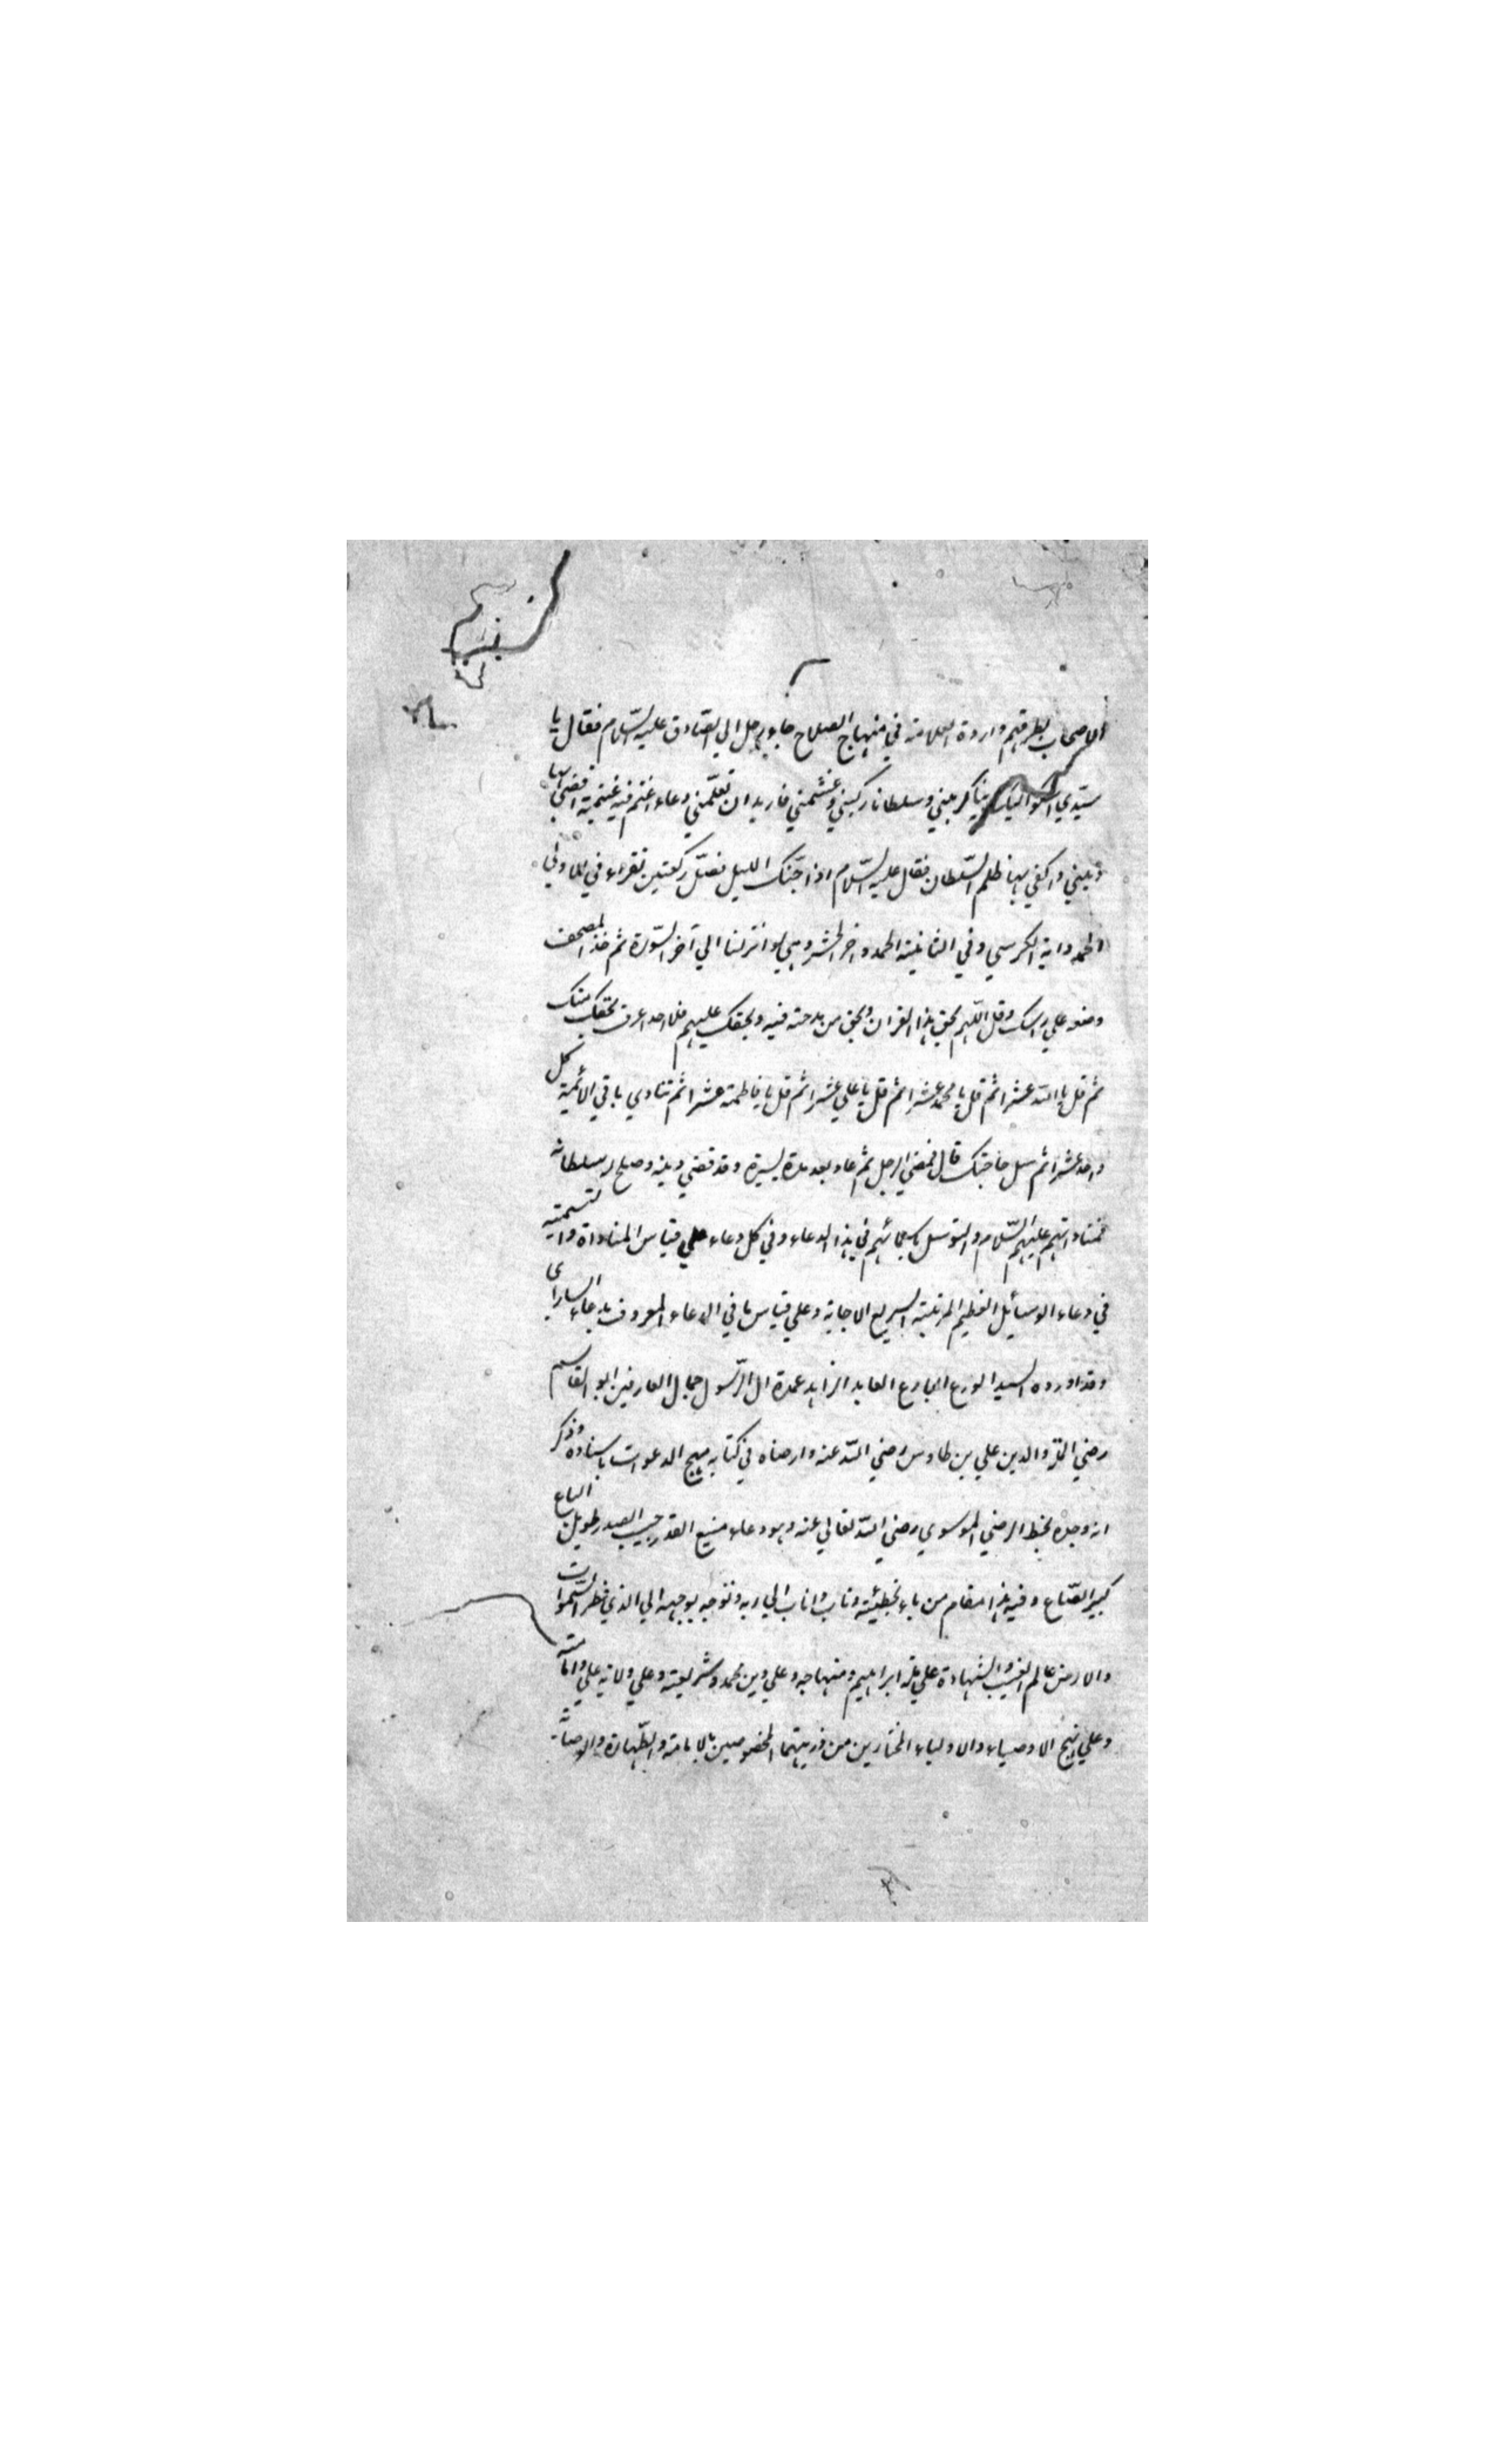 الاصحاب بطرقهم وارده العلامة في منهاج الصلاح جاء رجل الي الصادق عليه السّلام فقال يا
سيّدي اشكو اليك دينا كربني وسلطانا ركبني وغشمني فاريد ان تعلّمني دعاء اغتنم فيه غنيمة اقضي بها
ديني واكفي بها ظلم السّلطان فقال عليه السّلام اذا جنّك الليل فصلّ ركعتين تقراء في الاولي
الحمد واية الكرسي وفي الثانية الحمد واخر الحشر وهي لو انزلنا الي آخر السّورة ثم خذ المصحف
وضعه علي راسك وقل اللهم بحق هذا القران وبحق من مدحته فيه وبحقك عليهم فلا احد اعرف بحقك منك
ثم قل يا الله عشرا ثم قل يا محمد عشرا ثم قل يا علي عشرا ثم قل يا فاطمة عشرا ثم تنادي باقي الائمة كل
واحد عشرا ثم سل حاجتك قال فمضي الرجل ثم عاد بعد مدة يسيرة وقد قضي دينه وصلح له سلطانه
فمناداتهم عليهم السّلام والتوسل باسمائهم في هذا الدعاء وفي كل دعاء علي قياس المناداة والتسمية
في دعاء الوسائل العظيم المرتبة السريع الاجابة وعلي قياس ما في الدعاء المعروف بدعاء
وقد اورده السيد الورع البارع العابد الزاهد عمدة ال الرّسول جمال العارفين ابو القاسم
رضي الملة والدين علي بن طاوس رضي الله عنه وارضاه في كتابه مهج الدعوات باسناده وذكر
انه وجده بخط الرضي الموسوي رضي الله تعالي عنه وهو دعاء منيع القدر طويل الباع
كبير الصّاع وفيه هذا مقام من باء بخطيئته وتاب واناب الي ربه وتوجه بوجهه الي الذي فطر السّموات
والارض عالم الغيب والشهادة علي ملة ابراهيم ومنهاجه وعلي دين محمد وشريعته وعلي ولاية علي وامامته
وعلي نهج الاوصياء والاولياء المختارين من ذريتهما المخصوصين بالامامة والطّهارة والوصاية